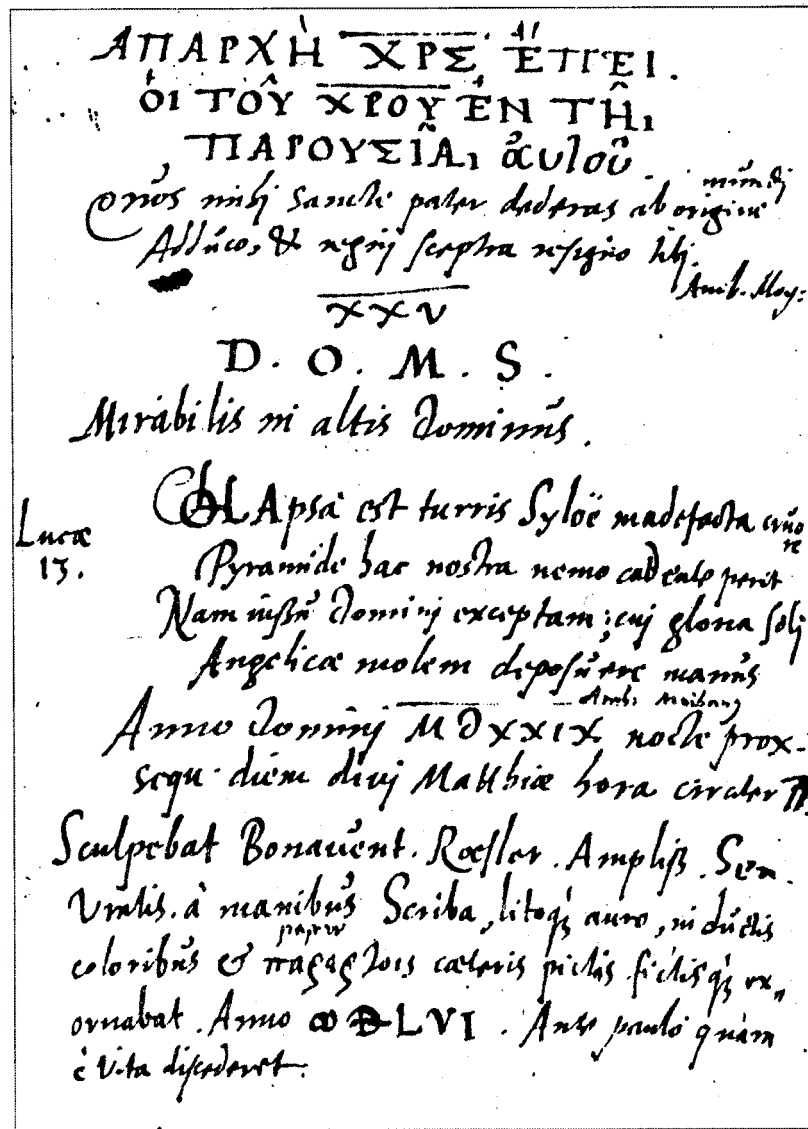 ΑΠΑΡΧῊ ΧΡΣ ἜΠΕΙ.
ὉΙ ΤΟΥ͂ ΧΡΟΥ ἘΝ ΤΗ͂Ι
ΠΑΡΟΥΣΊΑΙ ἀυτοῦ.
mundi
Onus mihi Sancte pater dederas ab origine
Adduco, & regni sceptra resigno tibi.
Amb. Moy:
XXV
D. O. M. S.
Mirabilis in altis dominus.
Lucæ
13.
COLLApsa est turris Syloë madefacta cruo
re
Pyramide hac nostra nemo cadente perit
Nam iussu domini exceptam; cui gloria soli
Angelicæ molem deposuere manus
Amb: Moibanus
Anno domini MDXXIX nocte prox.
sequ. diem divi Matthiæ hora circiter
Sculpebat Bonavent. Rœsler. Ampliss. Sen.
Vratis. à manibus Scriba, litoq́; auro, inductis
coloribus & cæteris pictis fictisq́; ex,,
ornabat. Anno LVI. Ante paulò quàm
è vita discederet.